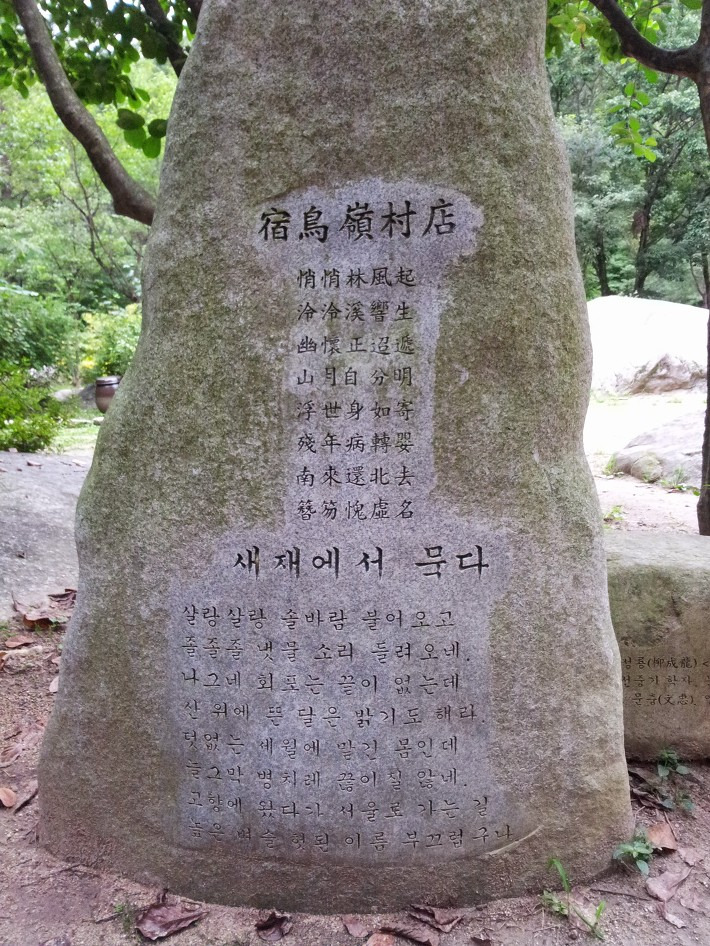 宿鳥嶺村店
悄悄林風起
泠泠溪響生
幽懷正迢遞
山月自分明
浮世身如寄
殘年病轉嬰
南來還北去
簪笏愧虛名
새재에서 묵다
살랑살랑 솔바람 불어오고
졸졸졸 냇물 소리 들려오네.
나그네 회포는 끝이 없는데
산 위에 뜬 달은 밝기도 해라.
덧없는 세월에 맡긴 몸인데
늘그막 병치레 끊이질 않네.
고향에 왔다가 서울로 가는 길
높은 벼슬 헛된 이름 부끄럽구나
성룡(柳成龍) <
문충(文忠).